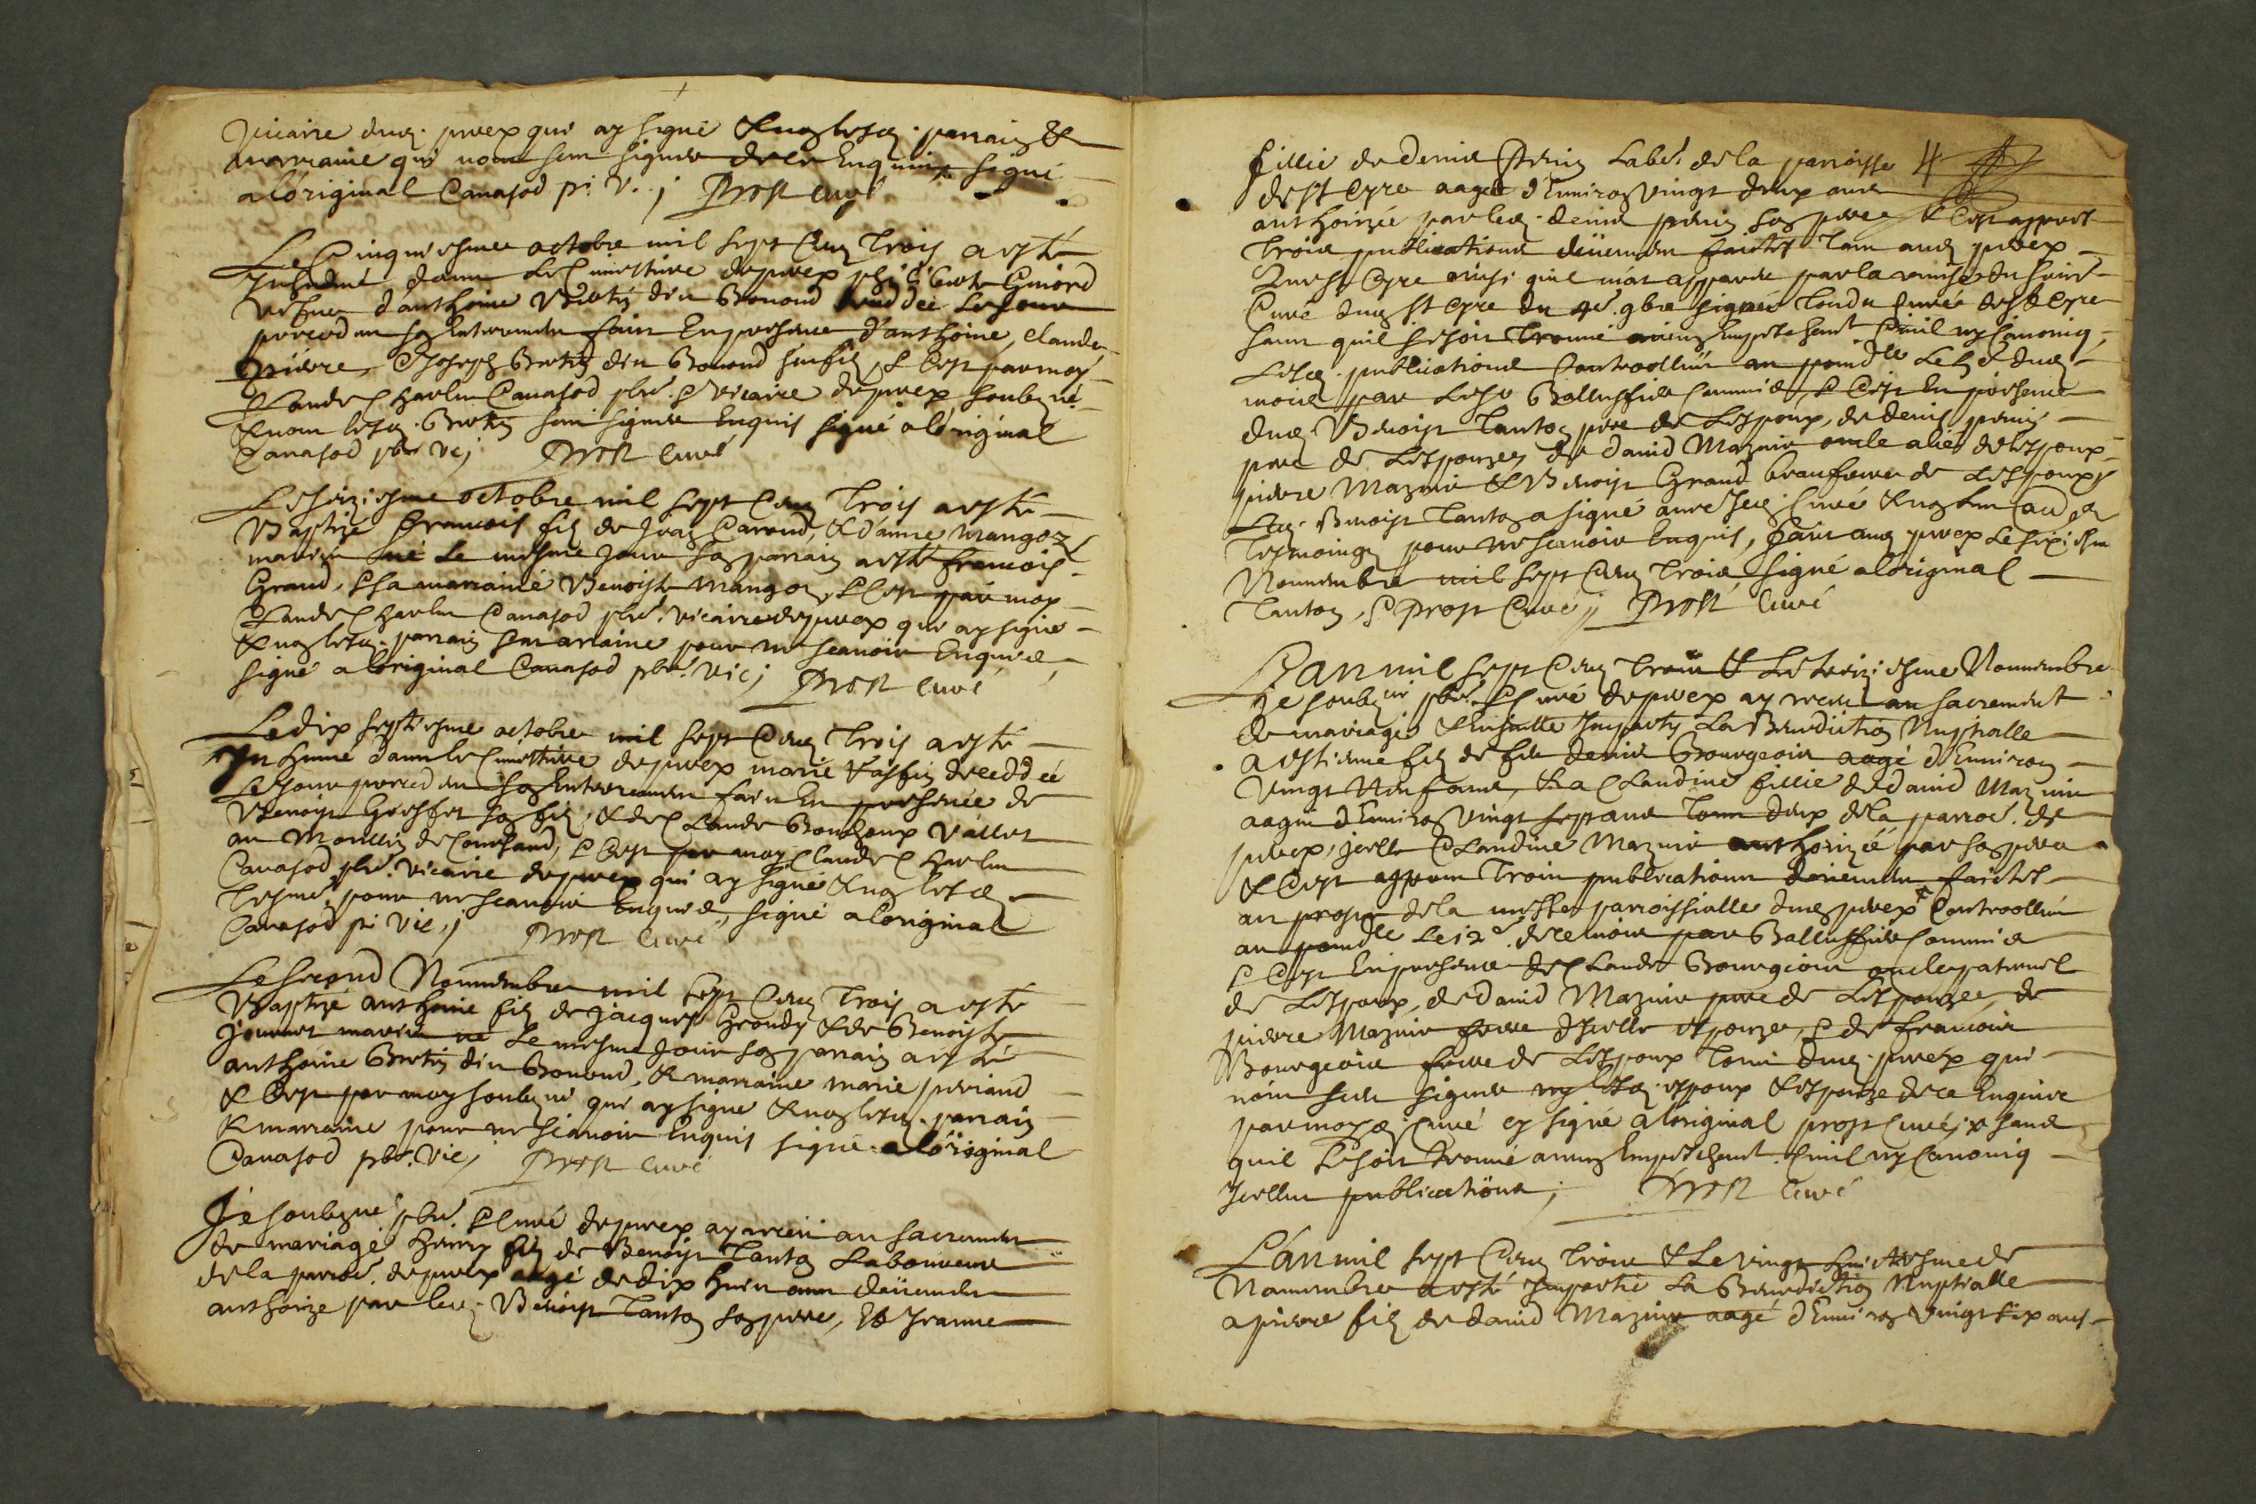 Vicaire dud. pruex qui ay signé & non lesd. parrain &
marraine qui nont sceu signer de ce enquis signé
a loriginal Canasod p. V. j Prost curé
Le cinquiesme octobre mil sept cens trois a esté
Inhumé dans le cimestiere de pruex Guiord
vefve danthoine Bertin dit Bonond decedée le jour
precedent son enterrement fait en presence danthoine, claude,
pierre, & Joseph Bertin dit Bonond ses fils, & ce par moy
Claude Charles Canasod pbr. & vicaire de pruex soubzné
& non lesd. Bertin sceu signer enquis signé a loriginal
Canasod pbr vic j Prost curé
Le seiziesme octobre mil sept cens trois a esté
Baptizé francois fils de Jean Carrond, & danne Mangoz
mariés né le mesme jour son parrain a esté francois
Grand, & sa marraine Benoiste Mangoz, & ce par moy
Claude Charles Canasod pbr. vicaire de pruex qui ay signé
& non lesd. parrain & marraine pour ne scavoir enquis
signé a loriginal Canasod pbr. vic j Prost curé
Le dix septiesme octobre mil sept cens trois a esté
Inhumé dans le cimestiere de pruex marie decedée
le jour precedent son enterrement fait en presence de
Benoist son fils, & de Claude Vallet
au Moullin de & ce par moy Claude Charles
Canasod pbr. vicaire de pruex qui ay signé & non lesd.
tesmoins pour ne scavoir enquis, signé a loriginal
Canasod p. vic. j Prost curé
Le second Novembre mil sept cens trois a esté
Baptizé anthoine fils de Jacques Grondy & de Benoiste
Journet mariés né le mesme jour son parrain a esté
anthoine Bertin dit Bonond, & marraine marie
& ce par moy soubzné qui ay signé & non lesd. parrain
& marraine pour ne scavoir enquis signé a loriginal
Canasod pbr. vic j Prost curé
Je soubzné pbr. & curé de pruex ay receu au sacrement
de mariage Henry fils de Benoist Tanton Laboureur
de la parroe. de pruex aagé de dix huit ans deuement
authorizé par led. Benoist Tanton son pere, & Jeanne
fillie de Denis Perrin Labr. de la parroisse 4
de St Cyre aagée denviron vingt deux ans
authorizée par led. denis perrin son pere & ce apres
trois publications deüement faictes tant aud. pruex
que St Cyre ainsi quil mat apparu par la remise du sieur
Curé dud. St Cyre du 4e. 9bre signée curé de St Cyre
sans quil se soit trouvé aucun empeschent. civil ny canoniq
lesd. publications controollées au le dud.
mois par le sr Balluffier commis, & ce en presence
dud. Benoist Tanton pere de lespoux, de denis perrin
pere de lespouze, de david Mazuir oncle de lespoux
pierre Mazuir & Benoist Grand beaufrere de lespoux
Led. Benoist Tanton a signé avec Je Curé & non les autres
tesmoings pour ne scavoir enquis, fait aud. pruex le sixiesme
Novembre mil sept cens trois, signé a loriginal
Tanton, & Prost Curé j Prost curé
Lan mil sept cens trois & le treiziesme Novembre
Je soubzné pbr. & Curé de pruex ay receu au sacrement
de mariage & ensuitte imparty la Benediction Nuptialle
a estienne fils de feu denis Bourgeois aagé denviron
vingt neuf ans, & a Claudine fillie de david Mazuir
aagée denviron vingt sept ans tous deux de la parroe. de
pruex, jcelle Claudine Mazuir authorizée par son pere
& ce apres trois publications deüement faictes
au prosne de la messe parroissialle dud. pruex controollées
au le 12e. de ce mois par Balluffier commis
& ce en presence de Claude Bourgeois oncle paternel
de lespoux, de david Mazuir pere de lespouze, de
pierre Mazuir frere dicelle espouze, & de francois
Bourgeois frere de lespoux tous dud. pruex qui
nont sceu signer ny lesd. espoux & espouze de ce enquis
par moyd. curé ay signé a loriginal prost curé j & sans
quil se soit trouvé aucun empeschent. civil ny canoniq
Jcelles publications j Prost curé
Lan mil sept cens trois & le vingt huictiesme de
Novembre a esté impartie la Benediction Nuptialle
a pierre fils de david Mazuir aagé denviron vingt six ans